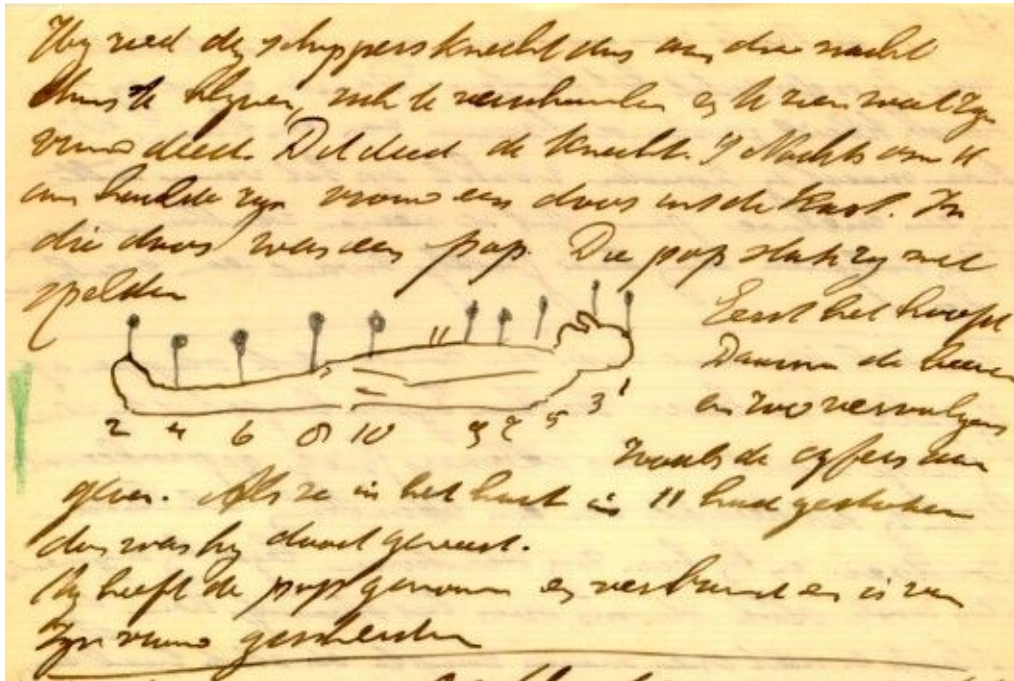 Hij ried de schippersknecht dus aan die nacht
thuis te blijven, zich te verschuilen en te zien wat zijn
vrouw deed. Dit deed de knecht. 's Nachts om 11
uur haalde zijn vrouw een doos uit de kast. In
die doos was een pop. Die pop stak zij met
spelden
Eerst het hoofd
Daarna de beenen
en zoo vervolgens
zooals de cyfers aan
11
2 4 6 8 10 9 7 5 3 1
geven. Als ze in het hart in 11 had gestoken
dan was hij dood geweest.
Hij heeft de pop genomen en verbrand en is van
zijn vrouw gescheiden